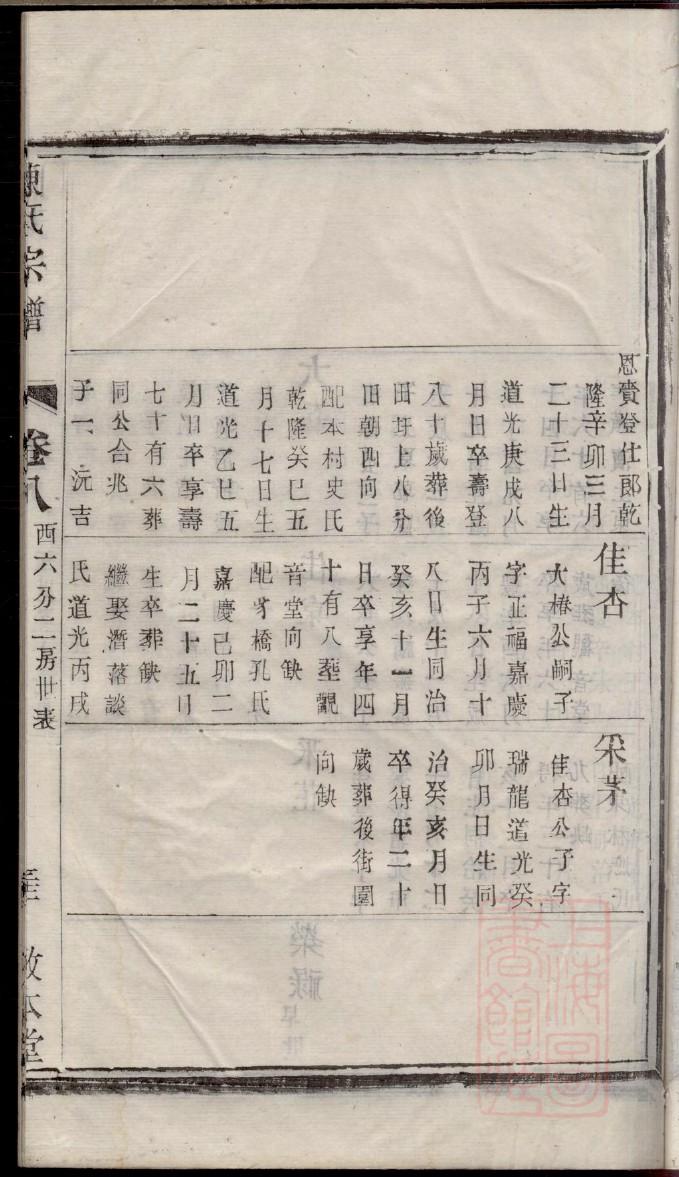 恩賚登仕郎乾
隆辛卯三月
二十三日生
道光庚戌八
月日卒壽登
八十歲葬後
田圩上八分
田朝西向
配本村史氏
乾隆癸巳五
月十七日生
道光乙巳五
月日卒享壽
七十有六葬
同公合兆
子一 沅吉
佳杏
大椿公嗣子
字正福嘉慶
丙子六月十
八日生同治
癸亥十一月
日卒享年四
十有八塟觀
音堂向缺
配牙橋孔氏
嘉慶己卯二
月二十五日
生卒葬缺
繼娶潛落談
氏道光丙戌
采芽
佳杏公子字
瑞龍道光癸
卯月日生同
治癸亥月日
卒得年二十
歲葬後街園
向缺
陳氏宗譜
卷八
西六分二房世表
敦本堂
上海圖書館藏